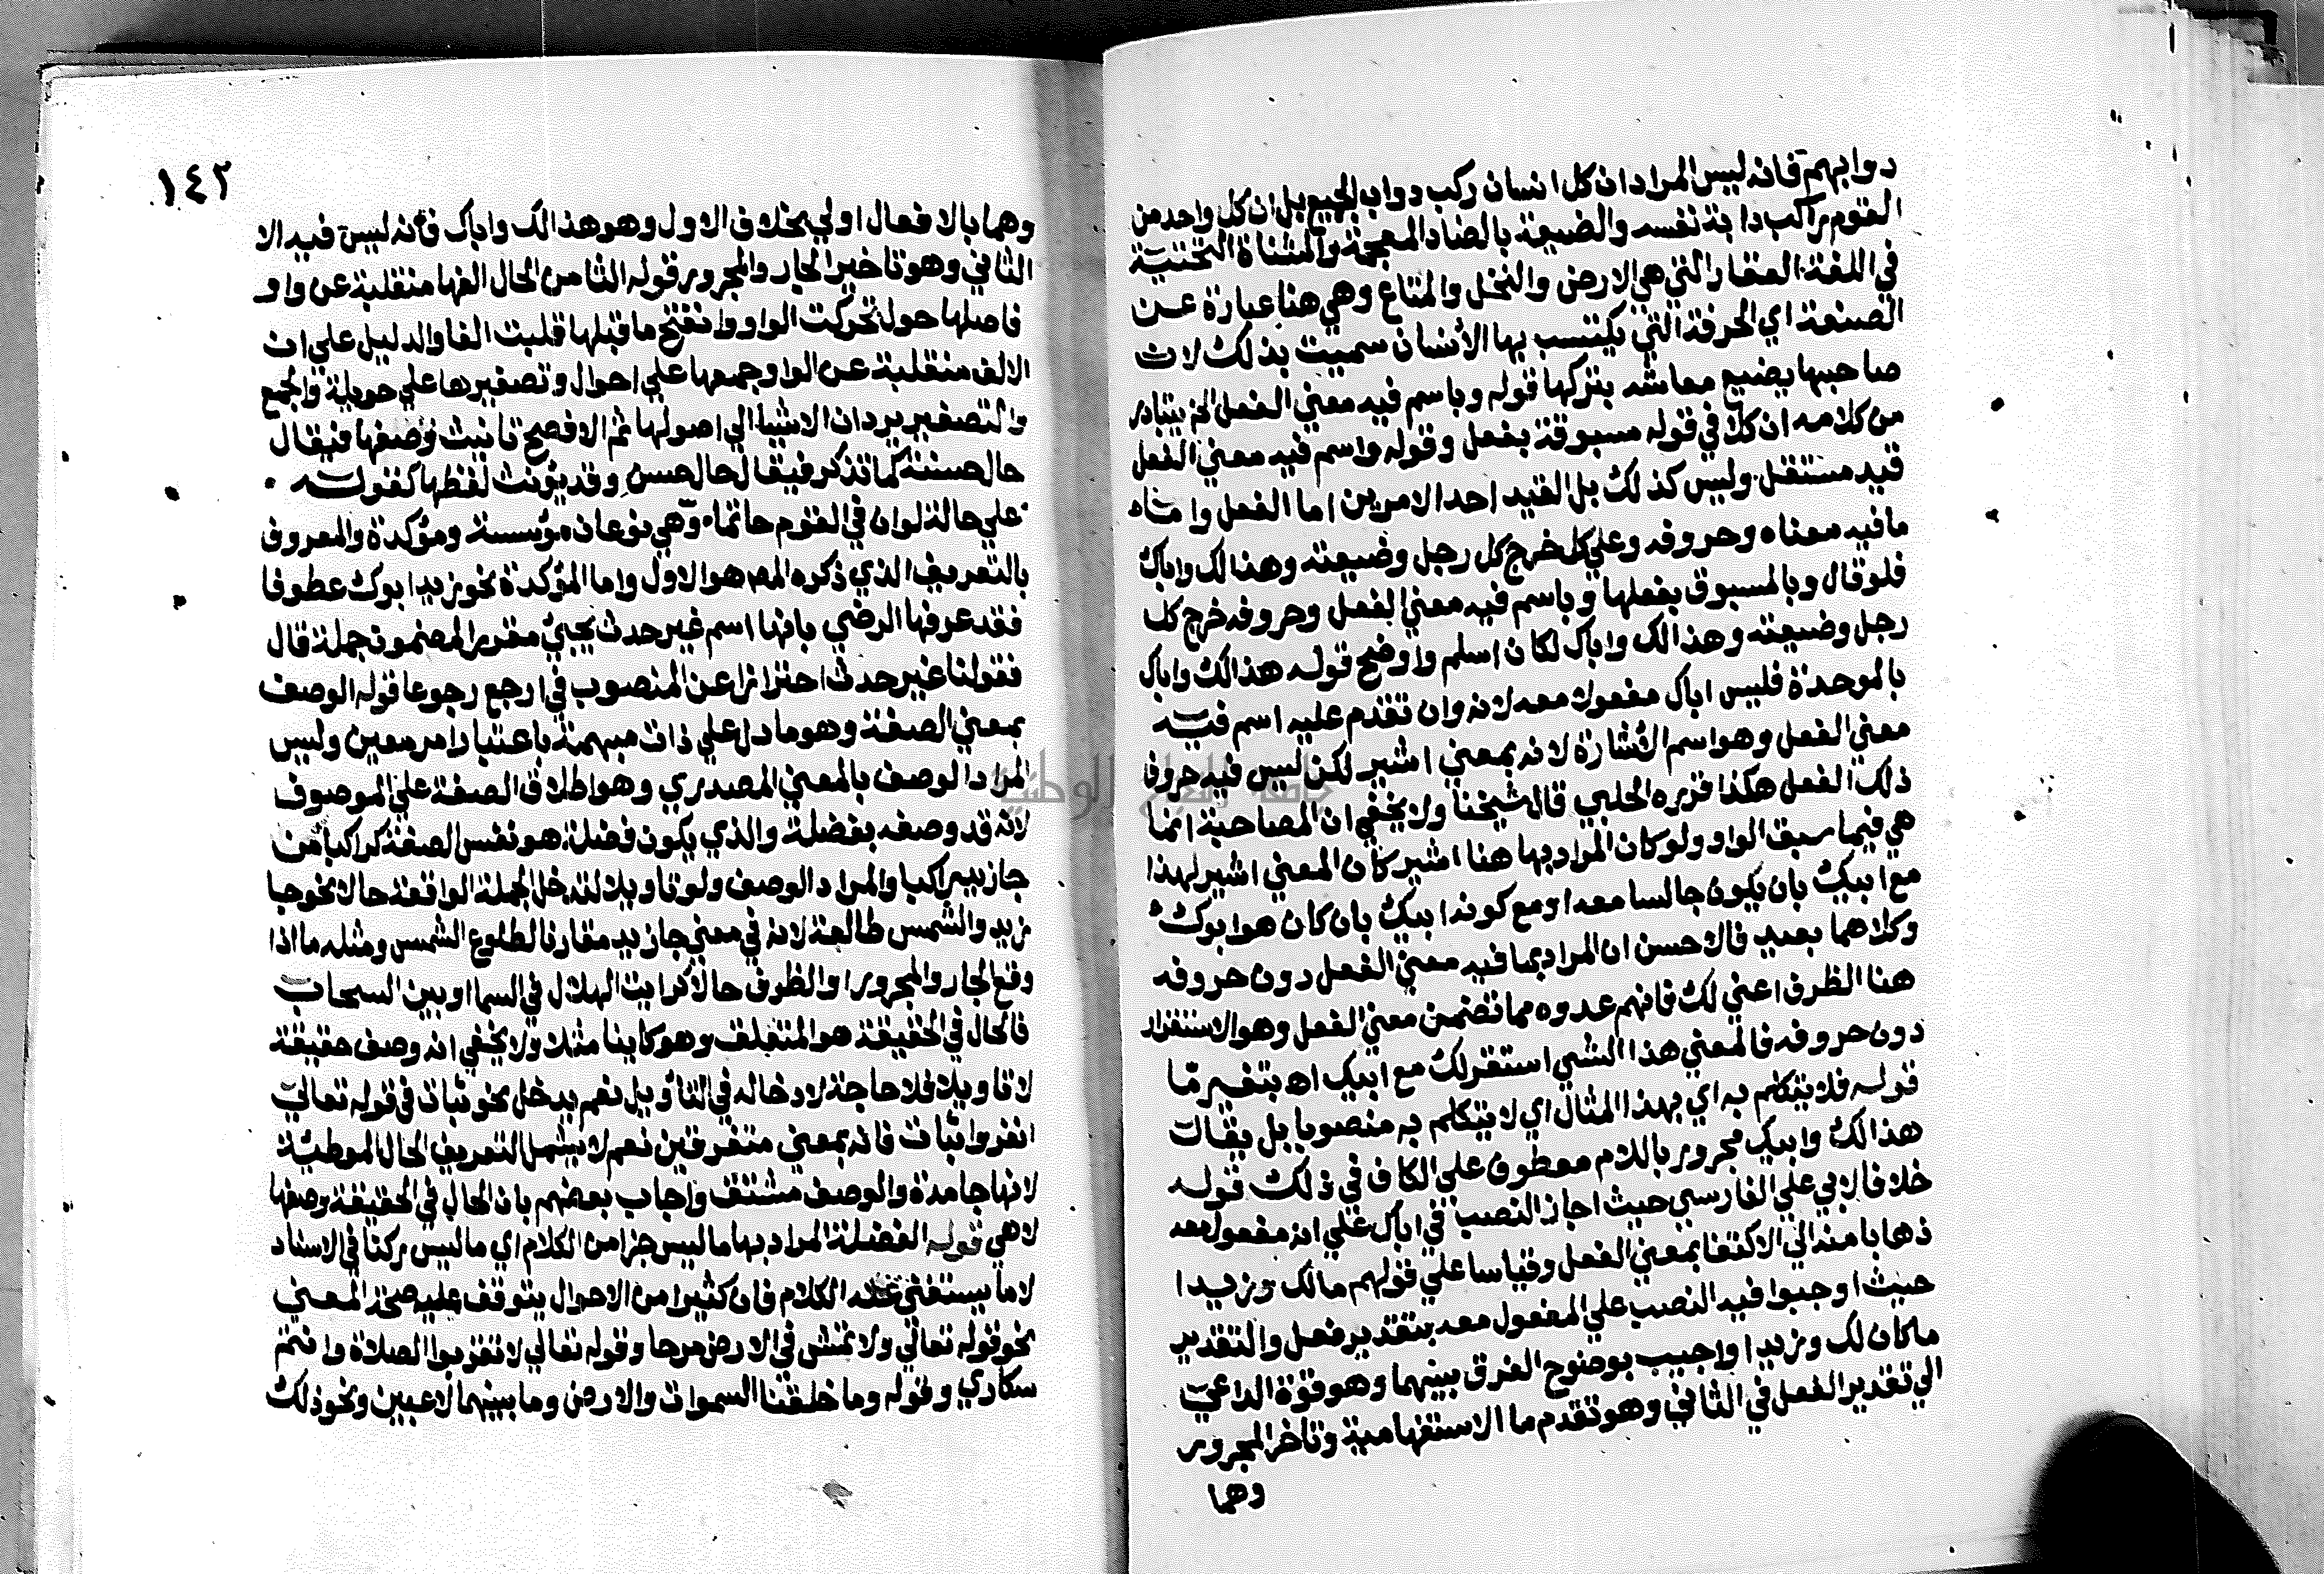 دوابهم فانه ليس المراد ان كل انسان ركب دواب الجميع بل ان كل واحد من
القوم راكب دابة نفسه والضيعة بالضاد المعجمة والمثناة التحتية
في اللغة العقار التي هي الارض والنخل والمتاع وهي هنا عبارة عن
الصنعة اي الحرفة التي يكتسب بها الانسان سميت بذلك لان
صاحبها يضيع معاشه بتركها قوله وباسم فيه معني الفعل الخ يتبادر
من كلامه ان كلا في قوله مسبوقة بفعل وقوله واسم فيه معني الفعل
قيد مستقل وليس كذلك بل القيد احد الامرين اما الفعل واما
ما فيه معناه وحروفه وعلي كل خرج كل رجل وضيعته وهذا لك واباك
فلو قال وبالمسبوق بفعلها وباسم فيه معني الفعل وحروفه خرج كل
رجل وضيعته وهذا لك واباك لكان اسلم واوضح قوله هذا لك واباك
بالموحدة فليس اباك مفعولا معه لانه وان تقدم عليه اسم فيه
معني الفعل وهو اسم الاشارة لانه بمعني اشير لكن ليس فيه حروف
ذلك الفعل هكذا قرره الحلبي قال شيخنا ولا يخفي ان المصاحبة انما
هي فيما سبق الواو ولو كان المراد بها هنا اشير كان المعني اشير لهذا
مع ابيك بان يكون جالسا معه او مع كونه ابيك بان كان هو ابوك
وكلاهما بعيد فالاحسن ان المراد بما فيه معني الفعل دون حروفه
هنا الظرف اعني لك فانهم عدوه مما تضمن معني الفعل وهو الاستقرار
دون حروفه فالمعني هذا الشي استقر لك مع ابيك اه بتغيير ما
قوله فلا يتكلم به اي بهذا المثال اي لا يتكلم به منصوبا بل يقال
هذا لك وابيك مجرور باللام معطوف علي الكاف في ذلك قوله
خلافا لابي علي الفارسي حيث اجاز النصب في اباك علي انه مفعول معه
ذهابا منه الي الاكتفا بمعني الفعل وقياسا علي قولهم مالك وزيدا
حيث اوجبوا فيه النصب علي المفعول معه بتقدير فعل والتقدير
ما كان لك وزيدا واجيب بوضوح الفرق بينهما وهو قوة الداعي
الي تقدير الفعل في الثاني وهو تقدم ما الاستفهامية وتاخر المجرور
وهما
١٤٢
وهما بالافعال اولي بخلاف الاول وهو هذا لك واباك فانه ليس فيه الا
الثاني وهو تاخير الجار والمجرور قوله الثامن الحال الفها منقلبة عن واو
فاصلها حول تحركت الواو وانفتح ما قبلها قلبت الفا والدليل علي ان
الالف منقلبة عن الواو جمعها علي احوال وتصغيرها علي حويلة والجمع
والتصغير يردان الاشيا الي اصولها ثم الافصح تانيث وصفها فيقال
حال حسنة كما تذكر فيقال حال حسن وقد يؤنث لفظها كقوله
علي حالة لو ان في القوم حاتما وهي نوعان مؤسسة ومؤكدة والمعروف
بالتعريف الذي ذكره المص هو الاول واما المؤكدة نحو زيد ابوك عطوفا
فقد عرفها الرضي بانها اسم غير حدث يجيئ مقررا لمضمون جملة قال
فقولنا غير حدث احترازا عن المنصوب في ارجع رجوعا قوله الوصف
بمعني الصفة وهو ما دل علي ذات مبهمة باعتبار امر معين وليس
المراد الوصف بالمعني المصدري وهو اطلاق الصفة علي الموصوف
لانه قد وصفه بفضلة والذي يكون فضلة هو نفس الصفة كراكبا من
جا زيد راكبا والمراد الوصف ولو تاويلا لتدخل الجملة الواقعة حالا نحو جا
زيد والشمس طالعة لانه في معني جا زيد مقارنا لطلوع الشمس ومثله ما اذا
وقع الجار والمجرور او الظرف حالا كرايت الهلال في السما او بين السحاب
فالحال في الحقيقة هو المتعلق وهو كاينا مثلا ولا يخفي انه وصف حقيقة
لا تاويلا فلا حاجة لادخاله في التاويل نعم يدخل نحو ثبات في قوله تعالي
انفروا ثبات فانه بمعني متفرقين نعم لا يشمل التعريف الحال الموطئة
لانها جامدة والوصف مشتق واجاب بعضهم بان الحال في الحقيقة وصفها
لا هي قوله الفضلة المراد بها ما ليس جزا من الكلام اي ما ليس ركنا في الاسناد
لا ما يستغني عنه الكلام فان كثيرا من الاحوال يتوقف عليه صحة المعني
نحو قوله تعالي ولا تمش في الارض مرحا وقوله تعالي لا تقربوا الصلاة وانتم
سكاري وقوله وما خلقنا السموات والارض وما بينهما لاعبين ونحو ذلك